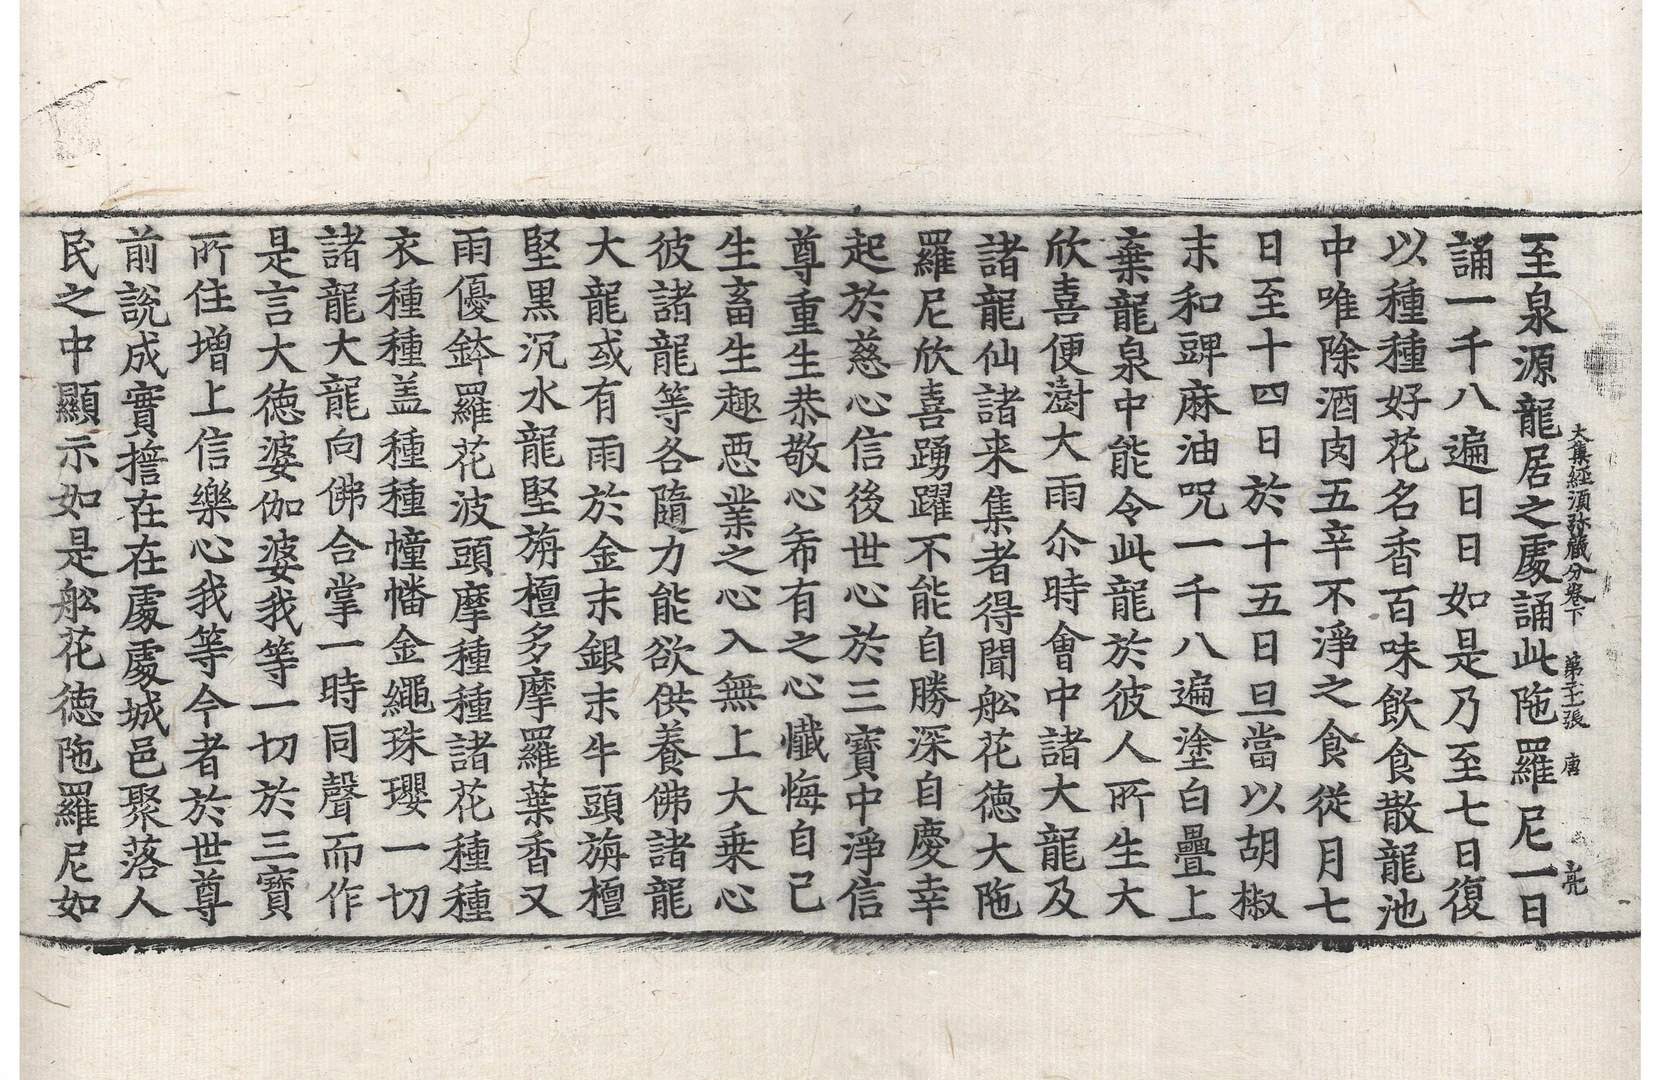 至泉源龍居之處誦此陁羅尼一日
大集經須弥藏分卷下 第 張 唐 亮
誦一千八遍日日如是乃至七日復
以種種好花名香百味飲食散龍池
中唯除酒肉五辛不淨之食從月七
日至十四日於十五日旦當以胡椒
末和豍麻油呪一千八遍塗白疊上
棄龍泉中能令此龍於彼人所生大
欣喜便澍大雨尒時會中諸大龍及
諸龍仙諸来集者得聞舩花徳大陁
羅尼欣喜踴躍不能自勝深自慶幸
起於慈心信後世心於三寳中淨信
尊重生恭敬心希有之心懺悔自己
生畜生趣悪業之心入無上大乗心
彼諸龍等各隨力能欲供養佛諸龍
大龍或有雨於金末銀末牛頭旃檀
堅黒沉水龍堅旃檀多摩羅葉香又
雨優鉢羅花波頭摩種種諸花種種
衣種種盖種種幢幡金繩珠瓔一切
諸龍大龍向佛合掌一時同聲而作
是言大徳婆伽婆我等一切於三寳
所住增上信樂心我等今者於世尊
前説成實擔在在處處城邑聚落人
民之中顯示如是舩花徳陁羅尼如